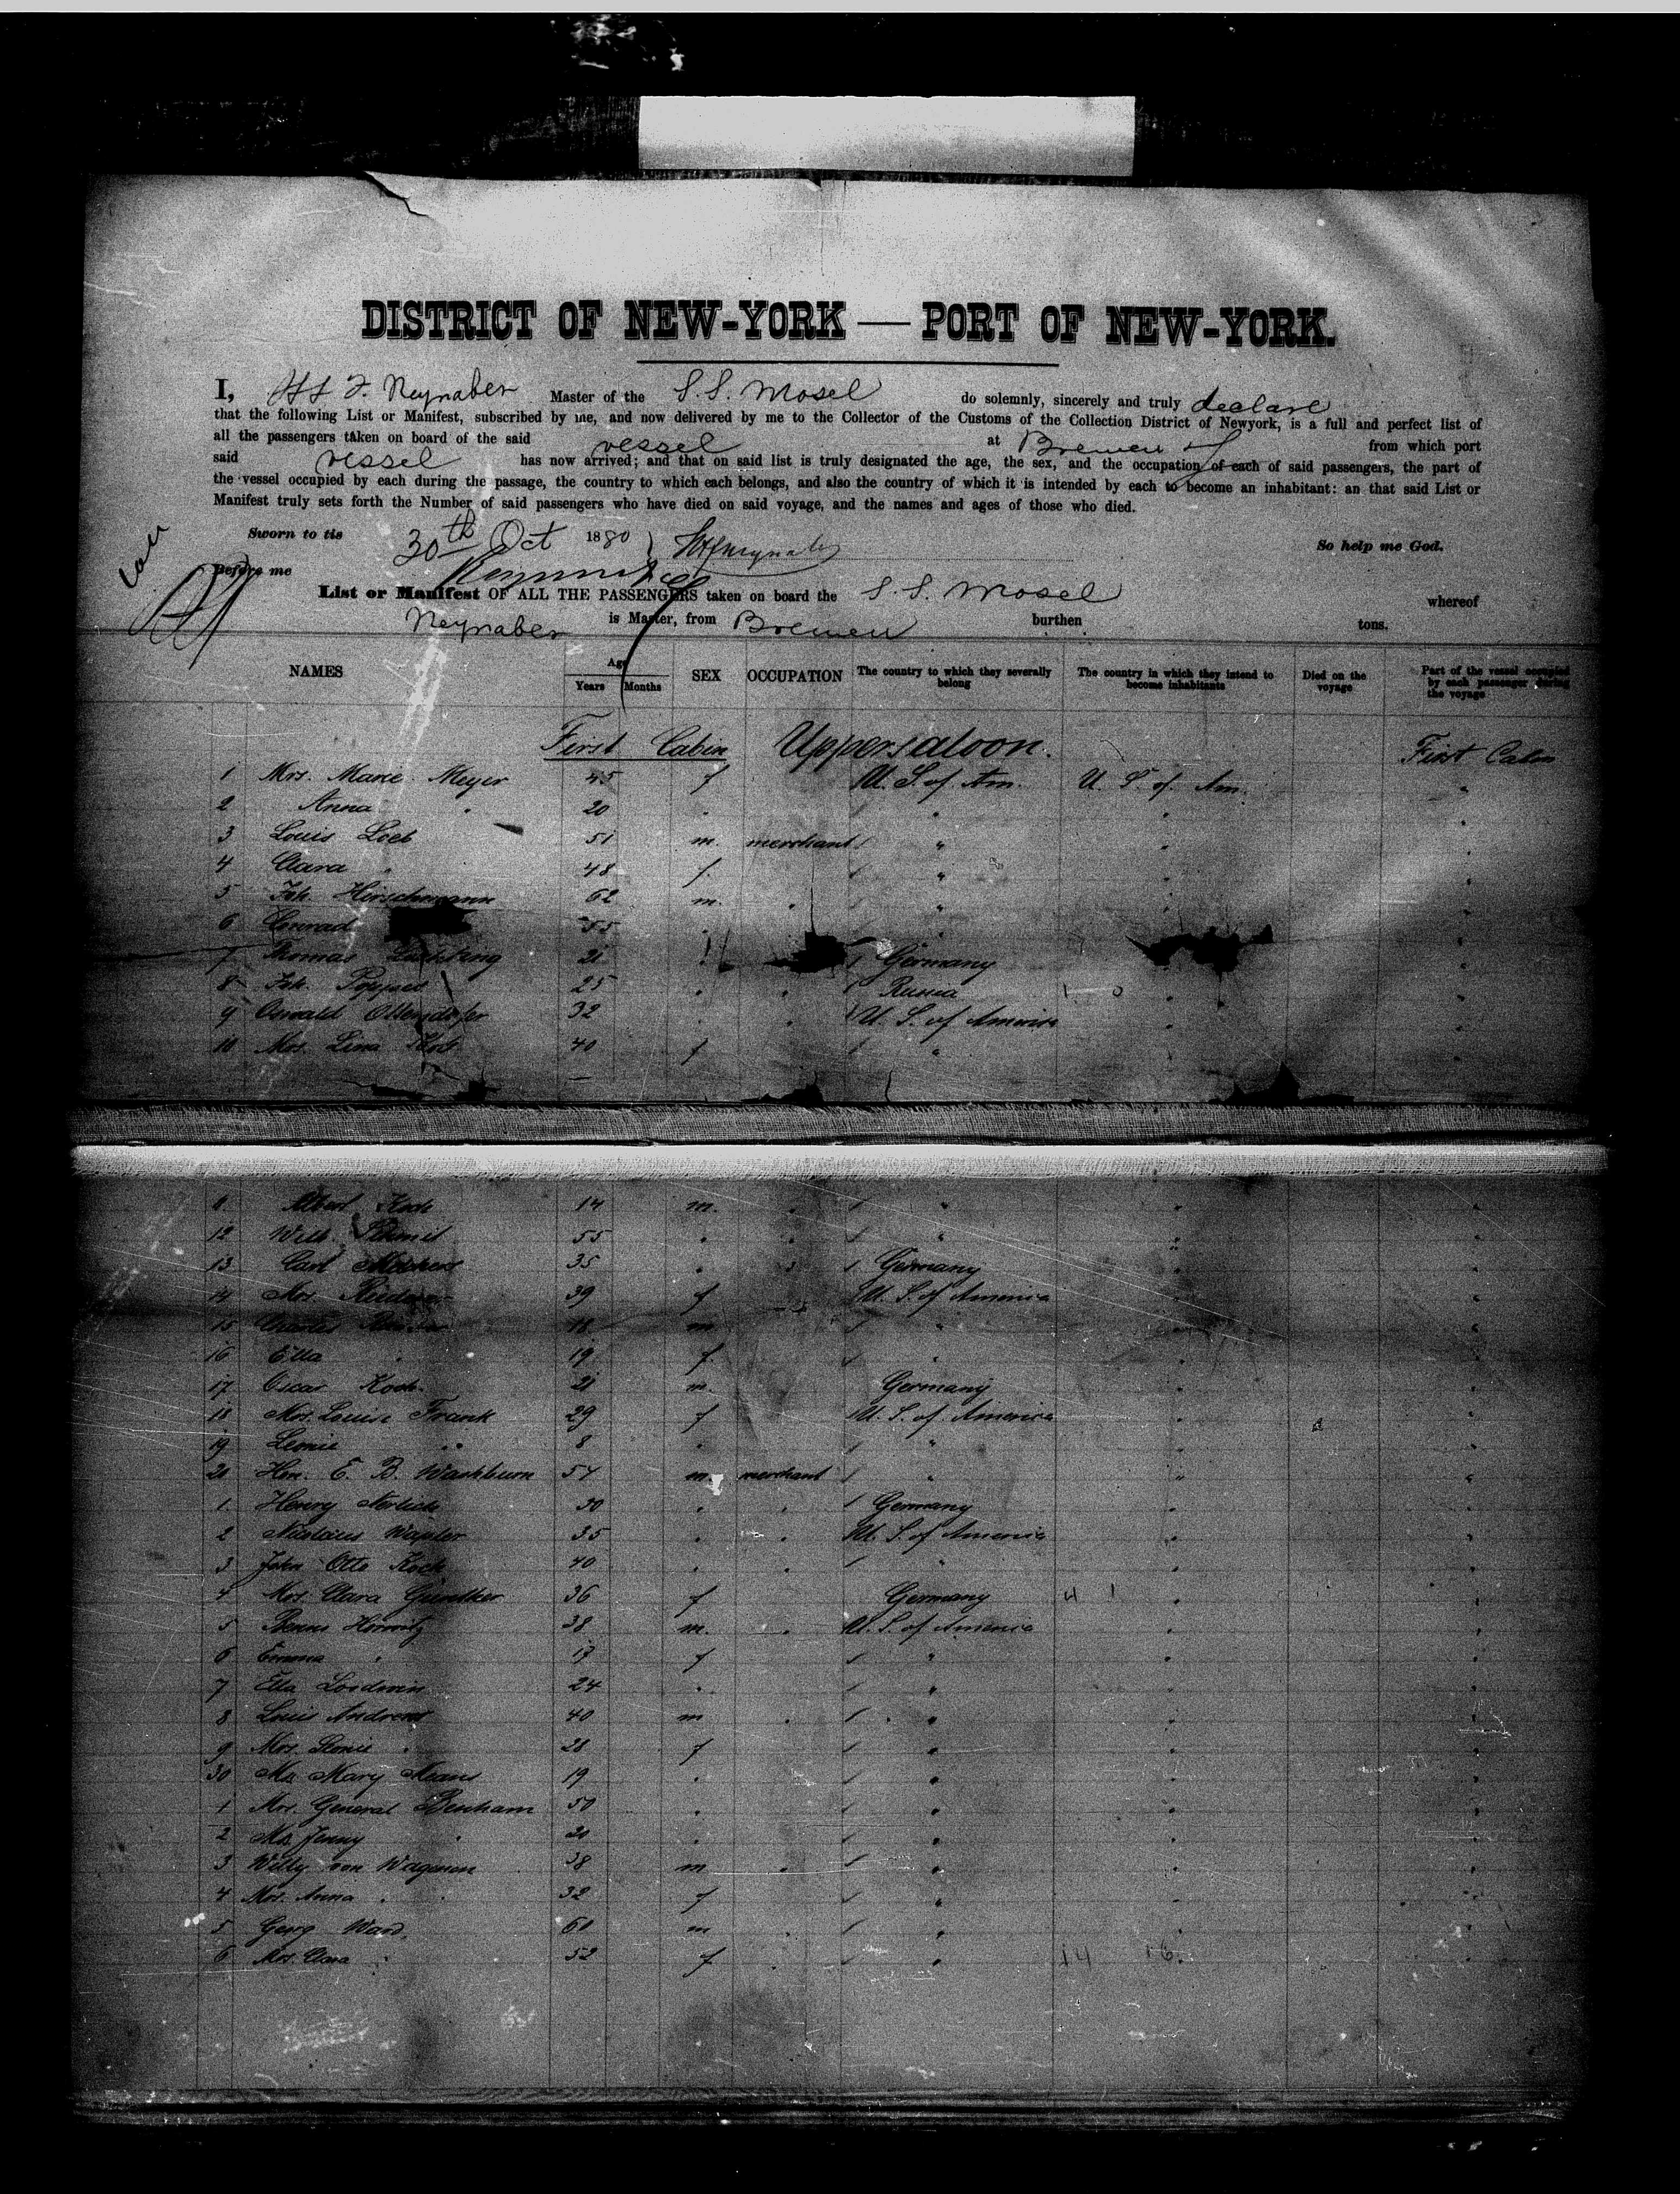 DISTRICT OF NEW-YORK — PORT OF NEW-YORK.
I, H. F. Neynaber Master of the S. S. Mosel do solemnly, sincerely and truly declare
that the following List or Manifest, subscribed by me, and now delivered by me to the Collector of the Customs of the Collection District of Newyork, is a full and perfect list of
all the passengers taken on board of the said vessel at Bremen from which port
said vessel has now arrived; and that on said list is truly designated the age, the sex, and the occupation of each of said passengers, the part of
the vessel occupied by each during the passage, the country to which each belongs, and also the country of which it is intended by each to become an inhabitant: an that said List or
Manifest truly sets forth the Number of said passengers who have died on said voyage, and the names and ages of those who died.
Sworn to tis 30th Oct 1880 So help me God.
Before me
List or Manifest OF ALL THE PASSENGERS taken on board the S. S. Mosel whereof
Neynaber is Master, from Bremen burthen tons.
NAMES Age Years Months SEX OCCUPATION The country to which they severally belong The country in which they intend to become inhabitants Died on the voyage Part of the vessel occupied by each passenger during the voyage
First Cabin Uppersaloon. First Cabin
1 Mrs. Marie Meyer 45 f U. S. of Am. U. S. of Am. "
2 Anna " 20 " " " "
3 Louis Loeb 51 m. merchant " " "
4 Clara " 48 f. " " "
5 Joh. Hirschmann 62 m. " " " "
6 Conrad 55 " "
7 Thomas 21 Germany "
8 Joh. 25 " " Russia " "
9 Oswald Ottendorfer 32 " " U. S. of America " "
10 Mrs. Lina 40 f " "
11 Albert Koch 14 m. " " " "
12 Wilh. 55 " " " " "
13 Carl Melchers 35 " " Germany " "
14 Mrs. 39 f U. S. of America " "
15 Charles 18 m " " "
16 Ella " 19 f " " "
17 Oscar Koch. 21 m. Germany " "
18 Mrs. Louise Frank 29 f U. S. of America " "
19 Leonie " 8 " " " "
20 Hon. E. B. Washburn 54 m. merchant " " "
1 Henry Nerlich 30 " " Germany " "
2 Nicolaus 35 " " U. S. of America " "
3 John Otto Koch 40 " " " " "
4 Mrs. Clara Günther 36 f Germany 4 1 " "
5 Benno Horwitz 38 m. " U. S. of America " "
6 Emma " 17 f " " "
7 Ella 24 " " " "
8 Louis Andrews 40 m " " " "
9 Mrs. " 28 f " " "
30 Ms. Mary Means 19 " " " "
1 Mrs. General Benham 50 " " " "
2 Ms. Jenny " 20 " " " "
3 Willy von Wagenen 38 m " " " "
4 Mrs. Anna " 32 f " " "
5 Georg Ward. 60 m " " " "
6 Mrs. Clara " 52 f " 14 16. "